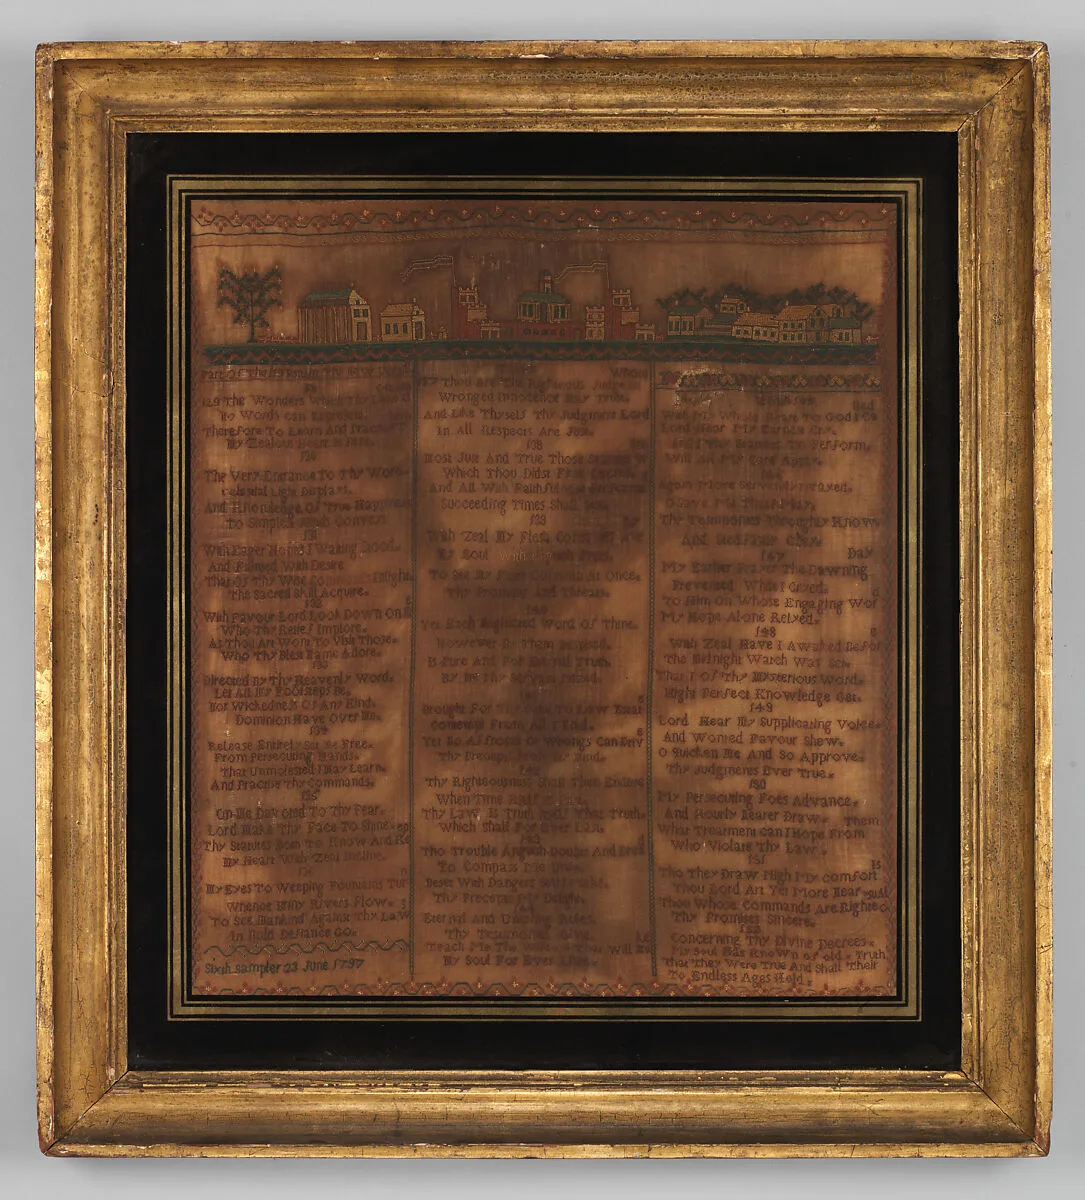 Part Of The
129 The Wonders Which Thy Laws
No Words can Represent.
Therefore To Learn And Practise
My Zealous Heart Is Bent.
130
The Very Entrance To Thy Word.
Celestial Light Displays.
And Knowledge Of True Happiness
To Simplest Minds Conveys
131
With Eager Hopes I Waiting Stood.
And Fainted With Desire
That Of Thy Wise Commands
The Sacred Skill Acquire.
132
With Favour Lord Look Down On
Who Thy Relief Implore.
As Thou Art Wont To Visit Those.
Who Thy Blest Name Adore.
133
Directed By Thy Heavenly Word.
Let All My Footsteps Be.
Nor Wickedness Of Any Kind.
Dominion Have Over Me.
134
Release Entirely Set Me Free.
From Persecuting Hands.
That Unmolested I May Learn.
And Practise Thy Commands.
135
On Me Devoted To Thy Fear.
Lord Make Thy Face To Shine.
Thy Statutes Both To Know And Ke
ep
My Heart With Zeal Incline.
136
My Eyes To Weeping Fountains Tur
n
Whence Briny Rivers Flow.
To See Mankind Against Thy Law
s
In Bold Defiance Go.
Sixth sampler 23 June 1797
Thou Art The Righteous Judge In
Whom
Wronged Innocence May Trust.
And Like Thyself Thy Judgments Lord
In All Respects Are Just.
138
Most Just And True Those
Which Thou Didst First Decree.
And All With Faithfulness
Succeeding Times Shall See.
139
With Zeal My Flesh Consumes
My Soul With Anguish Frets.
To See My Foes Contemn At Once.
Thy Promises And Threats.
140
Yet Each Neglected Word Of Thine.
However By Them Despised.
Is Pure And For Eternal Truth.
By Me Thy Servant Prized.
Brought For Thy Sake To Low Estat
e
Contempt From All I Find.
Yet No Affronts Or Wrongs Can Driv
e
Thy Precepts From My Mind.
142
Thy Righteousness Shall Then Endure
When Time Itself Is Past.
Thy Law Is Truth Itself That Truth.
Which Shall For Ever Last.
143
Tho Trouble Anguish Doubts And Drea
d
To Compass Me Unite.
Beset With Danger Still I Make.
Thy Precepts My Delight.
144
Eternal And Unerring Rules.
Thy Testimonies Give.
Teach Me The Wisdom That Will
My Soul For Ever Live.
With My Whole Heart To God I Ca
lled
Lord Hear My Earnest Cry.
And I Thy Statutes To Perform.
Will All My Care Apply.
146
Again More Fervently I Prayed.
O Save Me That I May.
Thy Testimonies Throughly Know.
And Stedfastly Obey.
147
My Earlier Prayer The Dawning
Day
Prevented While I Cryed.
To Him On Whose Engaging Wor
d
My Hope Alone Relyed.
148
With Zeal Have I Awaked Befor
e
The Midnight Watch Was Set.
That I Of Thy Mysterious Word.
Might Perfect Knowledge Get.
149
Lord Hear My Supplicating Voice.
And Wonted Favour Shew.
O Quicken Me And So Approve.
Thy Judgments Ever True.
150
My Persecuting Foes Advance.
And Hourly Nearer Draw.
What Treatment can I Hope From
Them
Who Violate Thy Law.
151
Tho They Draw Nigh My Comfort
is
Thou Lord Art Yet More Near
Thou Whose Commands Are Righteo
us
Thy Promises Sincere.
152
Concerning Thy Divine Decrees.
My Soul Has Known of old.
That They Were True And Shall Their
Truth
To Endless Ages Hold.